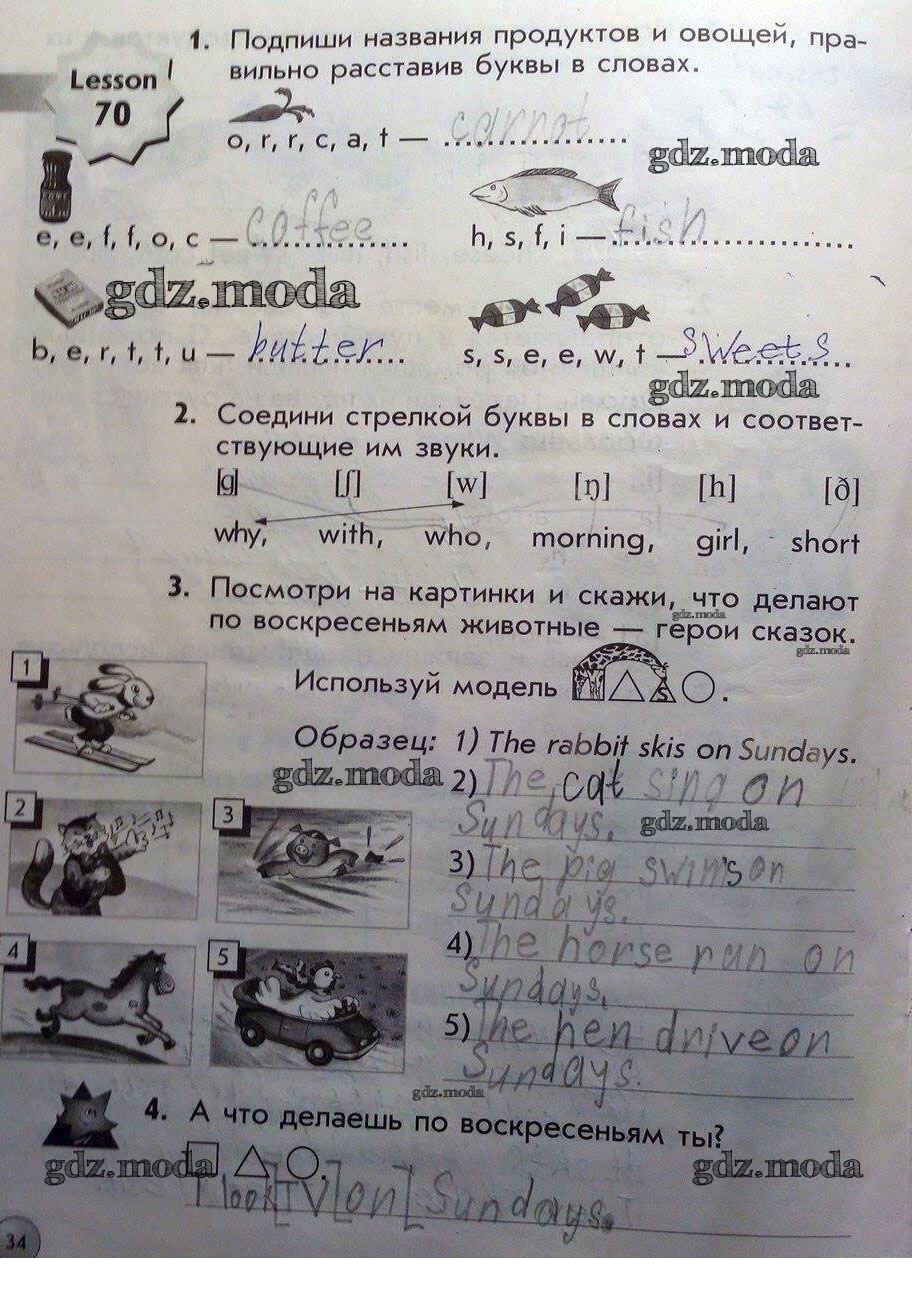 1. Подпиши названия продуктов и овощей, пра-
вильно расставив буквы в словах.
Lesson
70
o, r, r, c, a, t — carrot
gdz.moda
e, e, f, f, o, c — coffee
h, s, f, i — fish
gdz.moda
b, e, r, t, t, u — butter
s, s, e, e, w, t — sweets
gdz.moda
2. Соедини стрелкой буквы в словах и соответ-
ствующие им звуки.
[g] [ʃ] [w] [ŋ] [h] [ð]
why, with, who, morning, girl, short
3. Посмотри на картинки и скажи, что делают
gdz.moda
по воскресеньям животные — герои сказок.
gdz.moda
Используй модель s .
1
Образец: 1) The rabbit skis on Sundays.
gdz.moda
2) The cat sing on
Sundays.
gdz.moda
2
3
3) The pig swims on
Sundays.
4) The horse run on
Sundays.
4
5
5) The hen drive on
Sundays.
gdz.moda
4. А что делаешь по воскресеньям ты?
gdz.moda
gdz.moda
I look TV on Sundays.
34